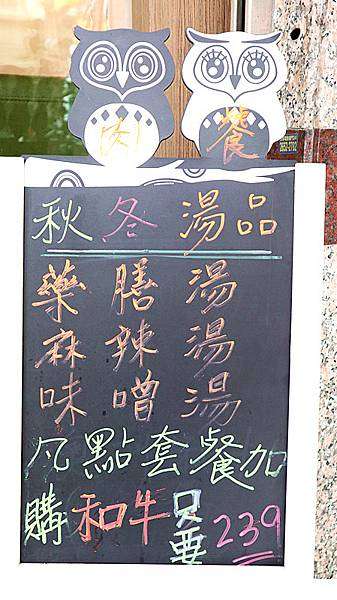 肉 餐
秋冬 湯品
藥膳湯
麻辣湯
味噌湯
凡點套餐加
購和牛只要239